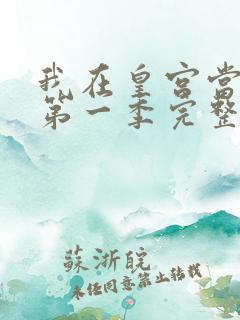 我在皇宫当
第一季完整
蘇浙皖
未经同意禁止转载